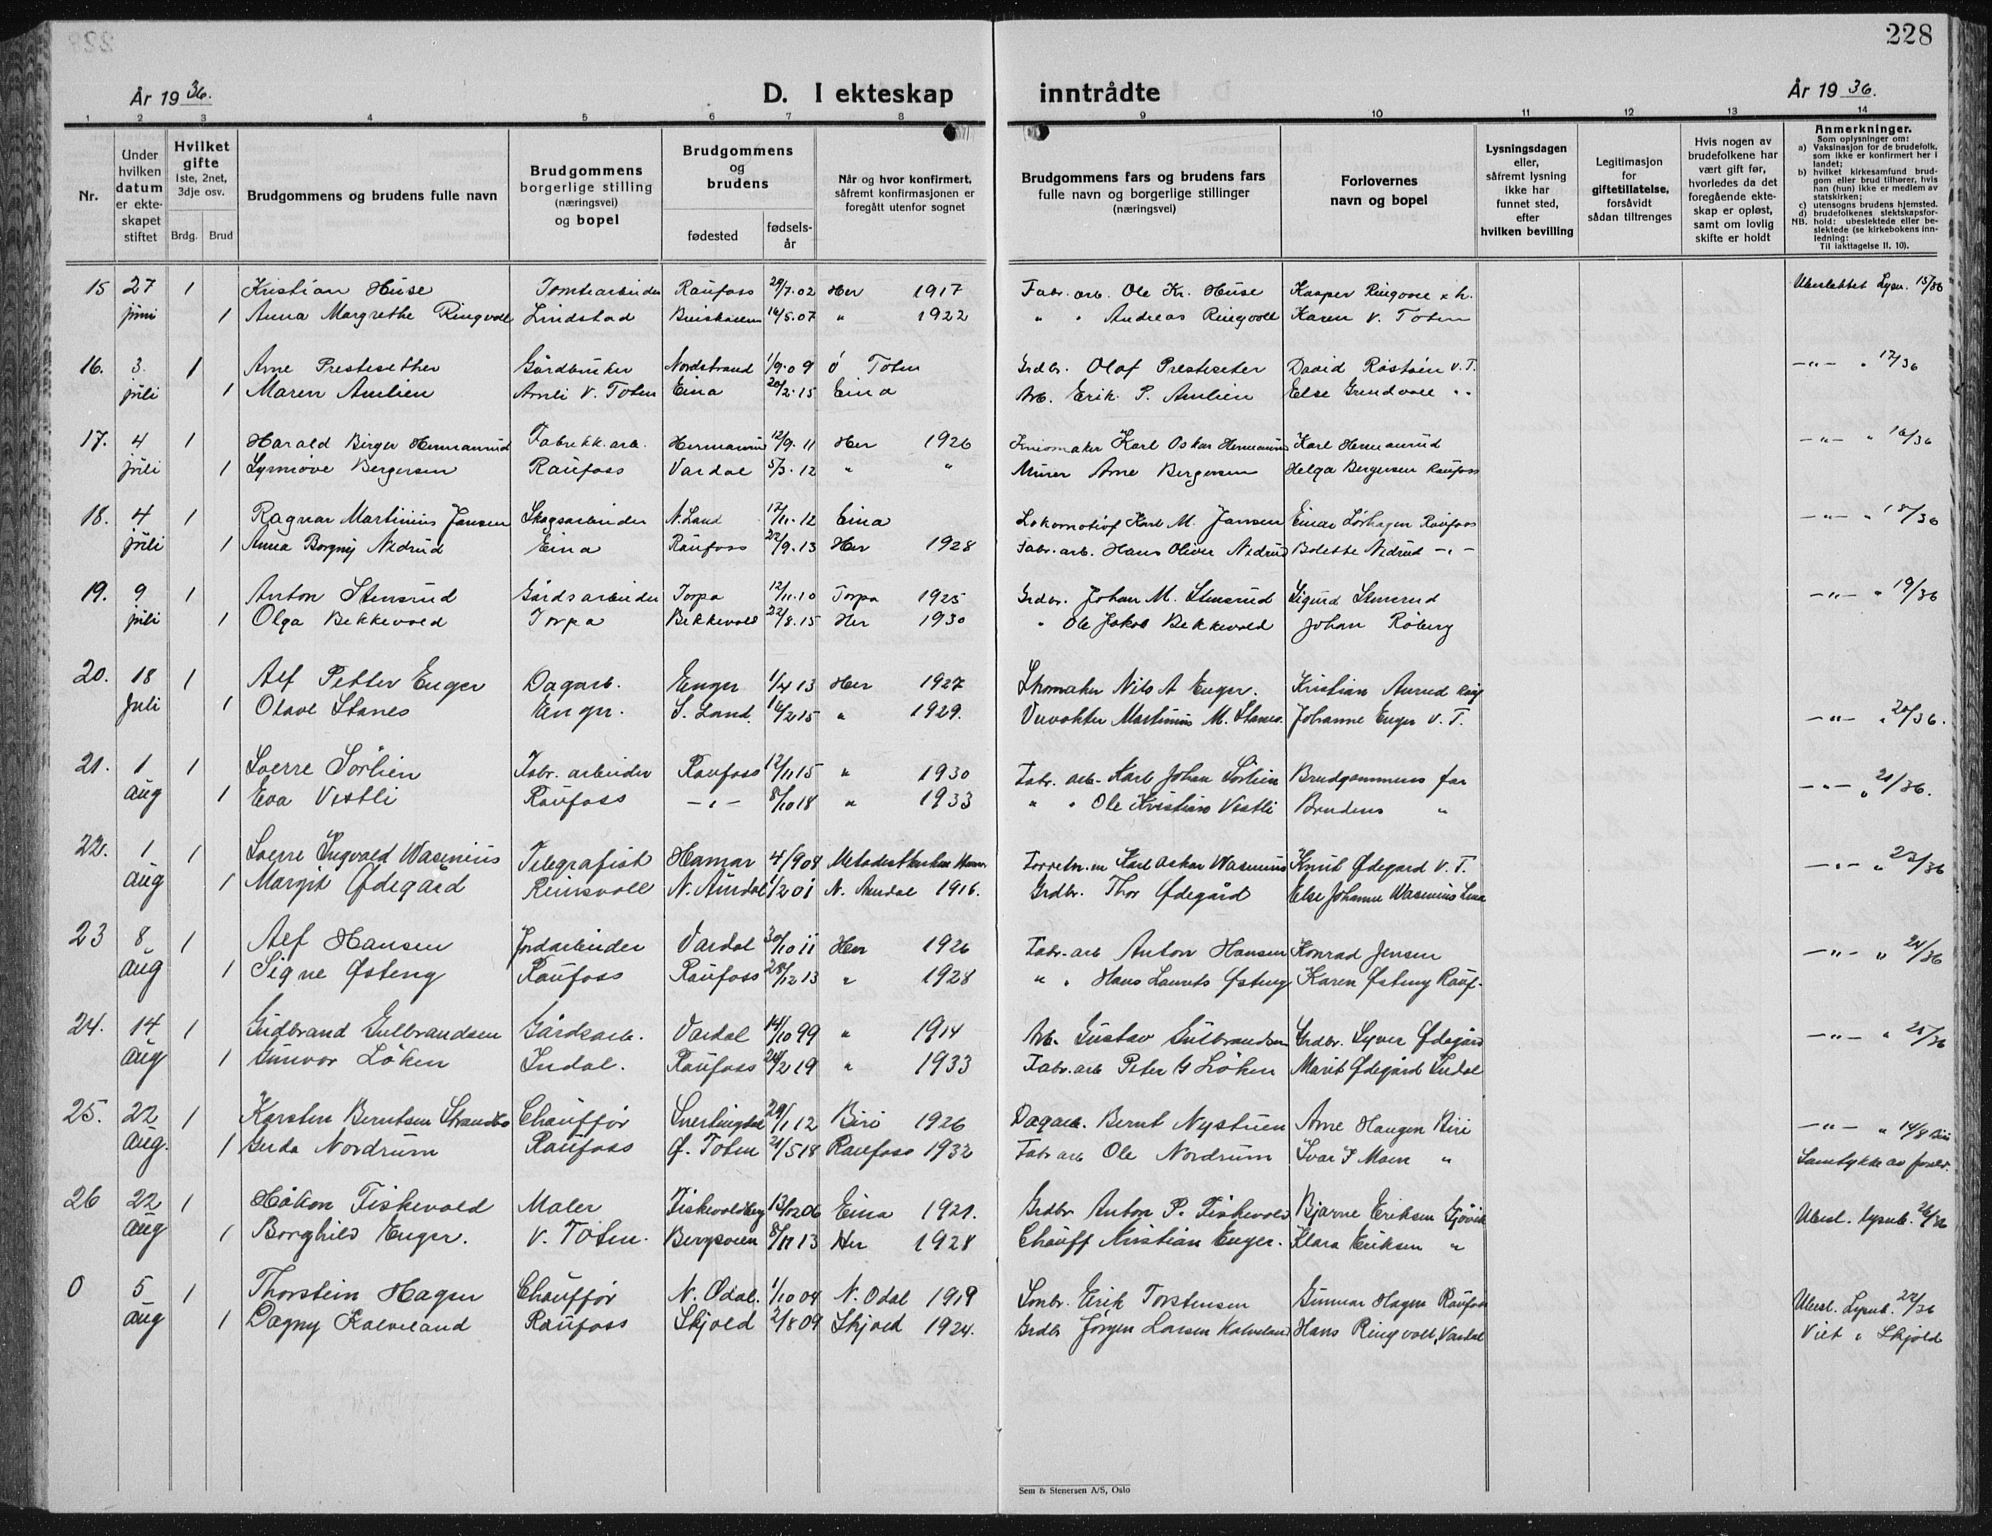 228
År 1936.
D. I ekteskap inntrådte
År 1936.
1 2 3 4 5 6 7 8 9 10 11 12 13 14
Nr.
Under hvilken datum er ekteskapet stiftet
Hvilket gifte 1ste, 2net, 3dje osv.
Brdg. Brud
Brudgommens og brudens fulle navn
Brudgommens borgerlige stilling (næringsvei) og bopel
Brudgommens og brudens
fødested
fødselsår
Når og hvor konfirmert, såfremt konfirmasjonen er foregått utenfor sognet
Brudgommens fars og brudens fars fulle navn og borgerlige stillinger (næringsvei)
Forlovernes navn og bopel
Lysningsdagen eller, såfremt lysning ikke har funnet sted, efter hvilken bevilling
Legitimasjon for giftetillatelse, forsåvidt sådan tiltrenges
Hvis nogen av brudefolkene har vært gift før, hvorledes da det foregående ekteskap er opløst, samt om lovlig skifte er holdt
Anmerkninger.
Som oplysninger om:
a) Vaksinasjon for de brudefolk, som ikke er konfirmert her i landet;
b) hvilket kirkesamfund brudgom eller brud tilhører, hvis han (hun) ikke er medlem av statskirken;
c) utensogns brudens hjemsted.
d) brudefolkenes slektskapsforhold: ubeslektede eller beslektede (se kirkebokens innledning:
NB.
Til iakttagelse II, 10).
15 27 1 Kristian Huse Tomtearbeider Raufoss 29/7.02 Her 1917 Fabr. arb. Ole Kr. Huse Kasper Ringvoll Ubeslektet Lysn. 15/36
juni 1 Anna Margrethe Ringvoll Lindstad 16/5.07 " 1922 " " Andreas Ringvoll Karen V. Toten
16. 3. 1 Arne Prestesether Gårdbruker Nordstrand 1/9.09 Ø Toten Grdbr. Olaf Prestseter David Røstøen V.T. —"— " 17/36
juli 1 Maren Amlien Amli V. Toten Eina 20/2.15 Eina Arb. Erik P. Amlien Else Grendvoll " "
17. 4 1 Harald Birger Hermanrud Fabrikk.arb. 12/9.11 Her 1926 Karl Oskar Hermanrud Karl Hermanrud —"— " 16/36
juli 1 Synnøve Bergersen Raufoss Vardal 5/3.12 " " Murer Arne Bergersen Helga Bergersen Raufoss
18. 4 1 Ragnar Martinius Jansen Skogsarbeider N. Land 12/11.12 Eina Lokomotivf Karl M. Jansen Einar Sørhagen Raufoss —"— " 18/36
juli 1 Anna Borgny Nedrud Eina Raufoss 22/9.13 Her 1928 Fabr. arb. Hans Oliver Nedrud Bolette Nedrud —"—
19. 9 1 Anton Stensrud Gårdsarbeider Torpa 12/11.10 Torpa 1925 Grdbr. Johan M. Stensrud Sigurd Stensrud —"— " 19/36
juli 1 Olga Bekkevold Torpa Bekkevold 22/8.15 Her 1930 " Ole Jakob Bekkevold Johan Røberg
20. 18 1 Alf Petter Enger Dagarb. Enger 1/4 13 Her 1927 Skomaker Nils A Enger. Kristian Aurud
Juli 1 Olave Stanes Enger. S. Land. 16/2 15 " 1929. Martinius M. Stanes. Johanne Enger V. T. —"— " 20/36.
21. 1 1 Sverre Sørlien Fabr. arbeider Raufoss 12/11 15 " 1930 Fabr. arb. Karl Johan Sørlien Brudgommens far —"— " 21/36.
aug 1 Eva Vestli Raufoss —"— 8/10 18 " 1933 " " Ole Kristian Vestli Brudens "
22. 1 1 Sverre Ingvald Wasenius Telegrafist Hamar 4/9 04 Karl Oskar Wasenius Knut Ødegard V. T. —"— " 22/36
aug 1 Margit Ødegård Reinsvoll N. Aurdal 1/2 01 N. Aurdal 1916. Grdbr. Thor Ødegård Else Johanne Wasenius Lena
23 8 1 Alf Hansen Jordarbeider Vardal 30/10 11 Her 1926 Fabr. arb Anton Hansen Konrad Jensen —"— " 24/36
aug 1 Signe Østeng Raufoss Raufoss 28/12 13 " 1928 " " Hans Laurits Østeng Karen Østeng Rauf.
24. 14 1 Gudbrand Gulbrandsen Gårdsarb. Vardal 14/10 99 " 1914 Arb. Gustav Gulbrandsen Grdbr. Syver Ødegård —"— " 25/36
aug 1 Gunvor Løken Indal. Raufoss 24/2 19 " 1933 Fabr. arb Peter G Løken Marit Ødegård Indal
25. 22 1 Karsten Berntsen Chauffør Snertingdal 29/1 12 Biri 1926 Dagarb. Bernt Nystuen Arne Haugen Biri —"— " 14/8
aug. 1 Gerda Nordrum Raufoss Ø. Toten 21/5 18 Raufoss 1932 Fabr arb Ole Nordrum Ivar I Moen " Samtykke av
26 22 1 Håkon Fiskevold Maler 13/12 06 Eina 1921. Grdbr Anton P. Fiskevold Bjarne Eriksen Gjøvik Ubesl. lysnb. 26/36
aug 1 Borghild Enger. V. Toten. 8/11 13 Her 1928 Chauff Kristian Enger. Klara Eriksen "
0 5 1 Thorstein Hagen Chauffør N. Odal. 1/10 04 N. Odal 1919 Erik Torstensen Gunnar Hagen Raufoss Ubesl. Lysnb. 22/36
aug 1 Dagny Kalveland Raufoss Skjold 2/8 09 Skjold 1924. Grdbr Jørgen Larsen Kalveland Hans Ringvoll, Vardal Viet i Skjold
Sem & Stenersen A/S, Oslo